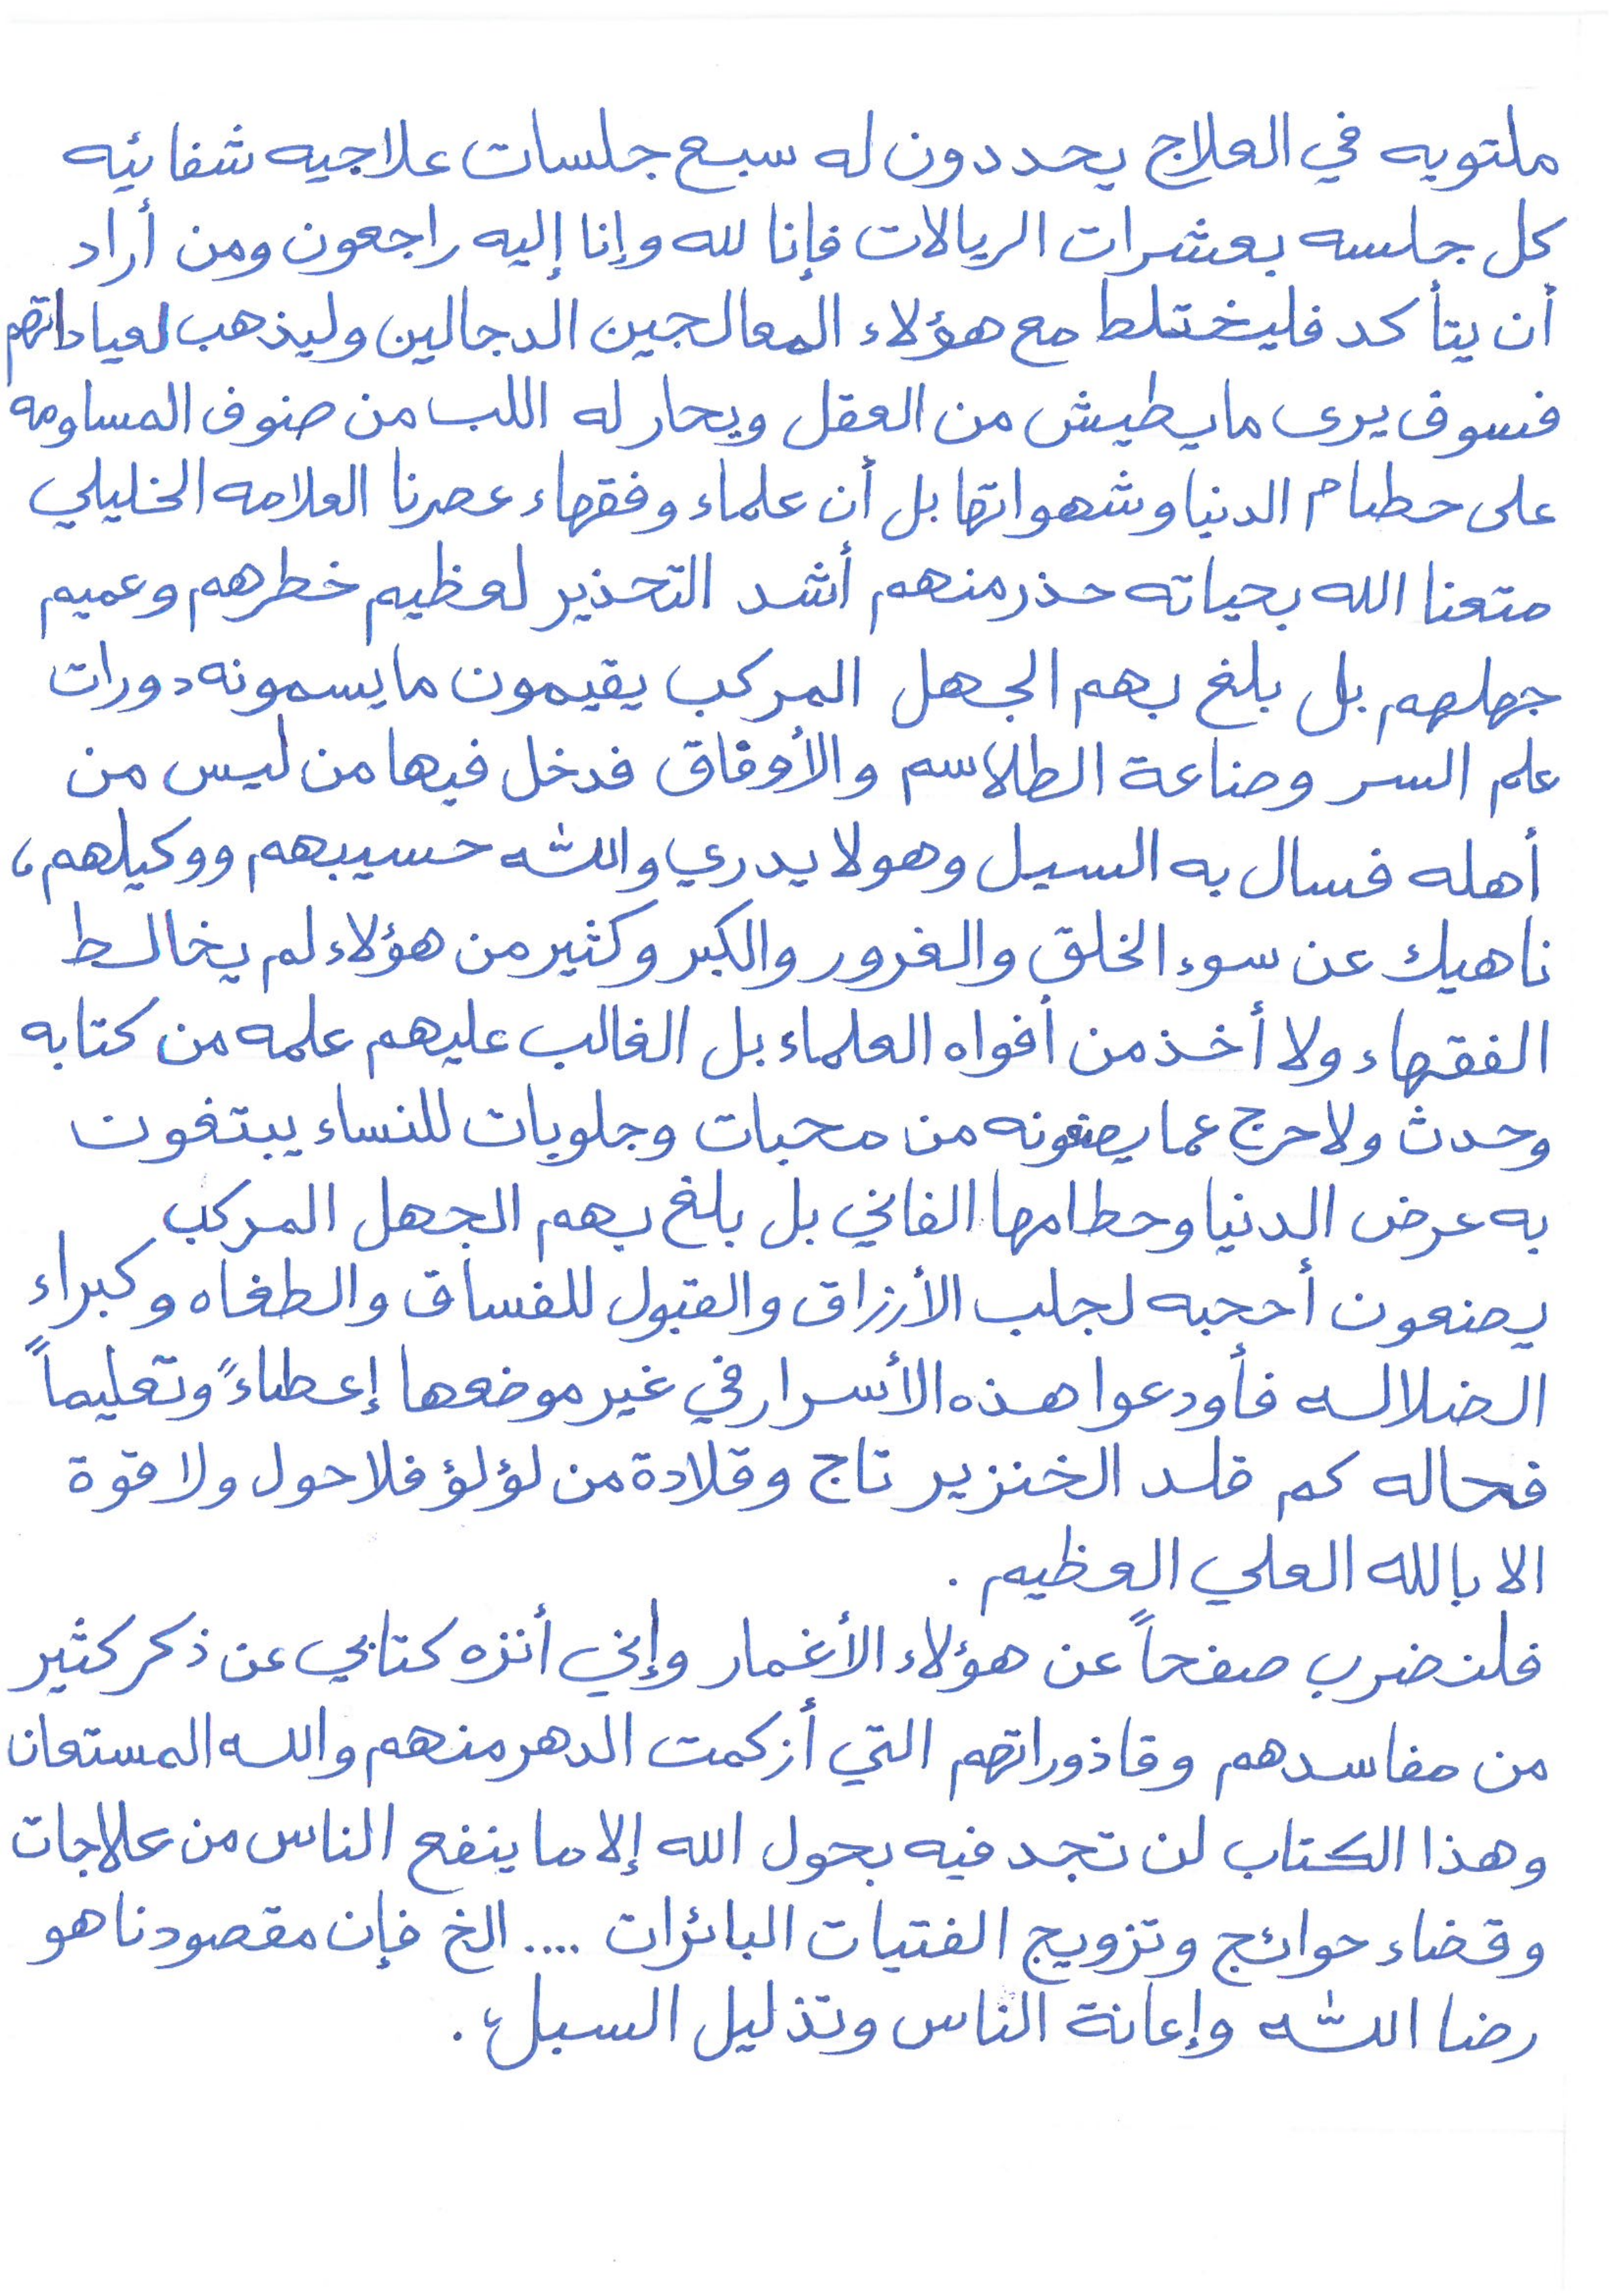 ملتويه في العلاج يحددون له سبع جلسات علاجيه شفائيه
كل جلسه بعشرات الريالات فإنا لله وإنا إليه راجعون ومن أراد
أن يتأكد فليختلط مع هؤلاء المعالجين الدجالين وليذهب لعياداتهم
فسوف يرى مايطيش من العقل ويحار له اللب من صنوف المساومه
على حطام الدنيا وشهواتها بل أن علماء وفقهاء عصرنا العلامه الخليلي
متعنا الله بحياته حذر منهم أشد التحذير لعظيم خطرهم وعميم
جهلهم بل بلغ بهم الجهل المركب يقيمون مايسمونه دورات
علم السر وصناعة الطلاسم والأوفاق فدخل فيها من ليس من
أهله فسال به السيل وهو لا يدري والله حسيبهم ووكيلهم،
ناهيك عن سوء الخلق والغرور والكبر وكثير من هؤلاء لم يخالط
الفقهاء ولا أخذ من أفواه العلماء بل الغالب عليهم علمه من كتابه
وحدث ولا حرج عما يصنعونه من محبات وجلوبات للنساء يبتغون
به عرض الدنيا وحطامها الفاني بل بلغ بهم الجهل المركب
يصنعون أحجبه لجلب الأرزاق والقبول للفساق والطغاه وكبراء
الضلاله فأودعوا هذه الأسرار في غير موضعها إعطاءً وتعليماً
فحاله كم قلد الخنزير تاج وقلادة من لؤلؤ فلا حول ولا قوة
الا بالله العلي العظيم .
فلنضرب صفحاً عن هؤلاء الأغمار وإني أنزه كتابي عن ذكر كثير
من مفاسدهم وقاذوراتهم التي أزكمت الدهر منهم والله المستعان
وهذا الكتاب لن تجد فيه بحول الله إلا ما ينفع الناس من علاجات
وقضاء حوائج وتزويج الفتيات البائرات .... الخ فإن مقصودنا هو
رضا الله وإعانة الناس وتذليل السبل .